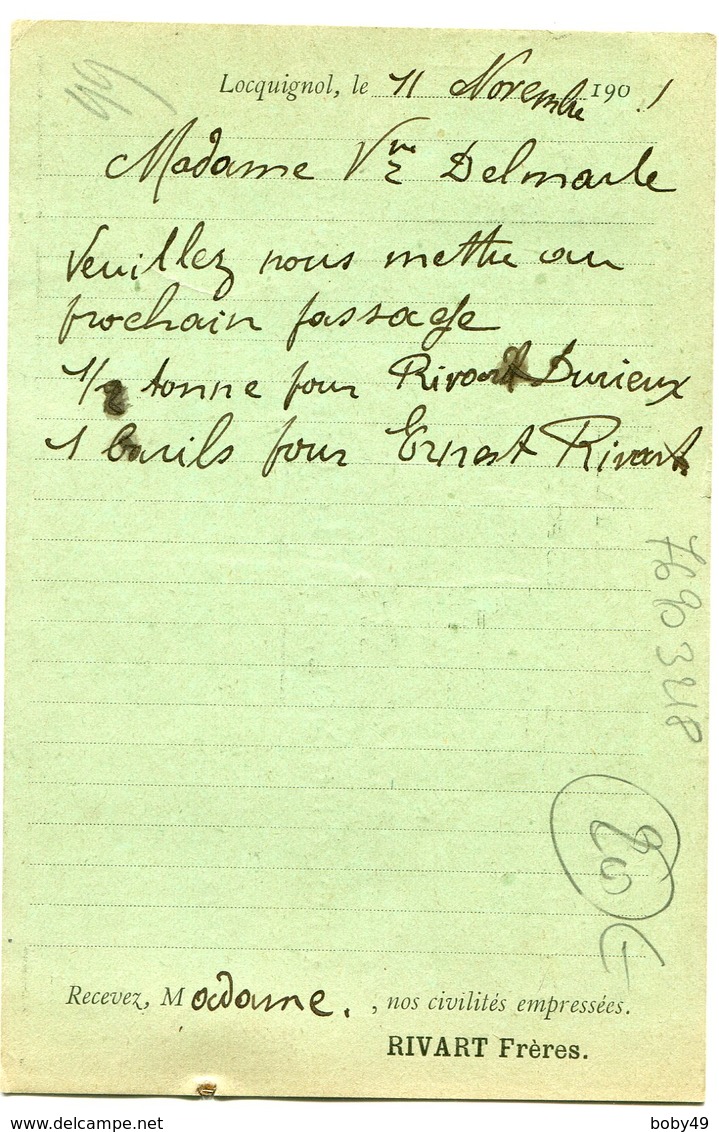 49
Locquignol, le 11 Novembre 1901
Madame Vve Delmarle
Veuillez nous mettre au
prochain passage
1/2 tonne pour Rivart Durieux
1 barils pour Ernest Rivart
Recevez, Madame. , nos civilités empressées.
RIVART Frères.
20
delcampe.net
boby49